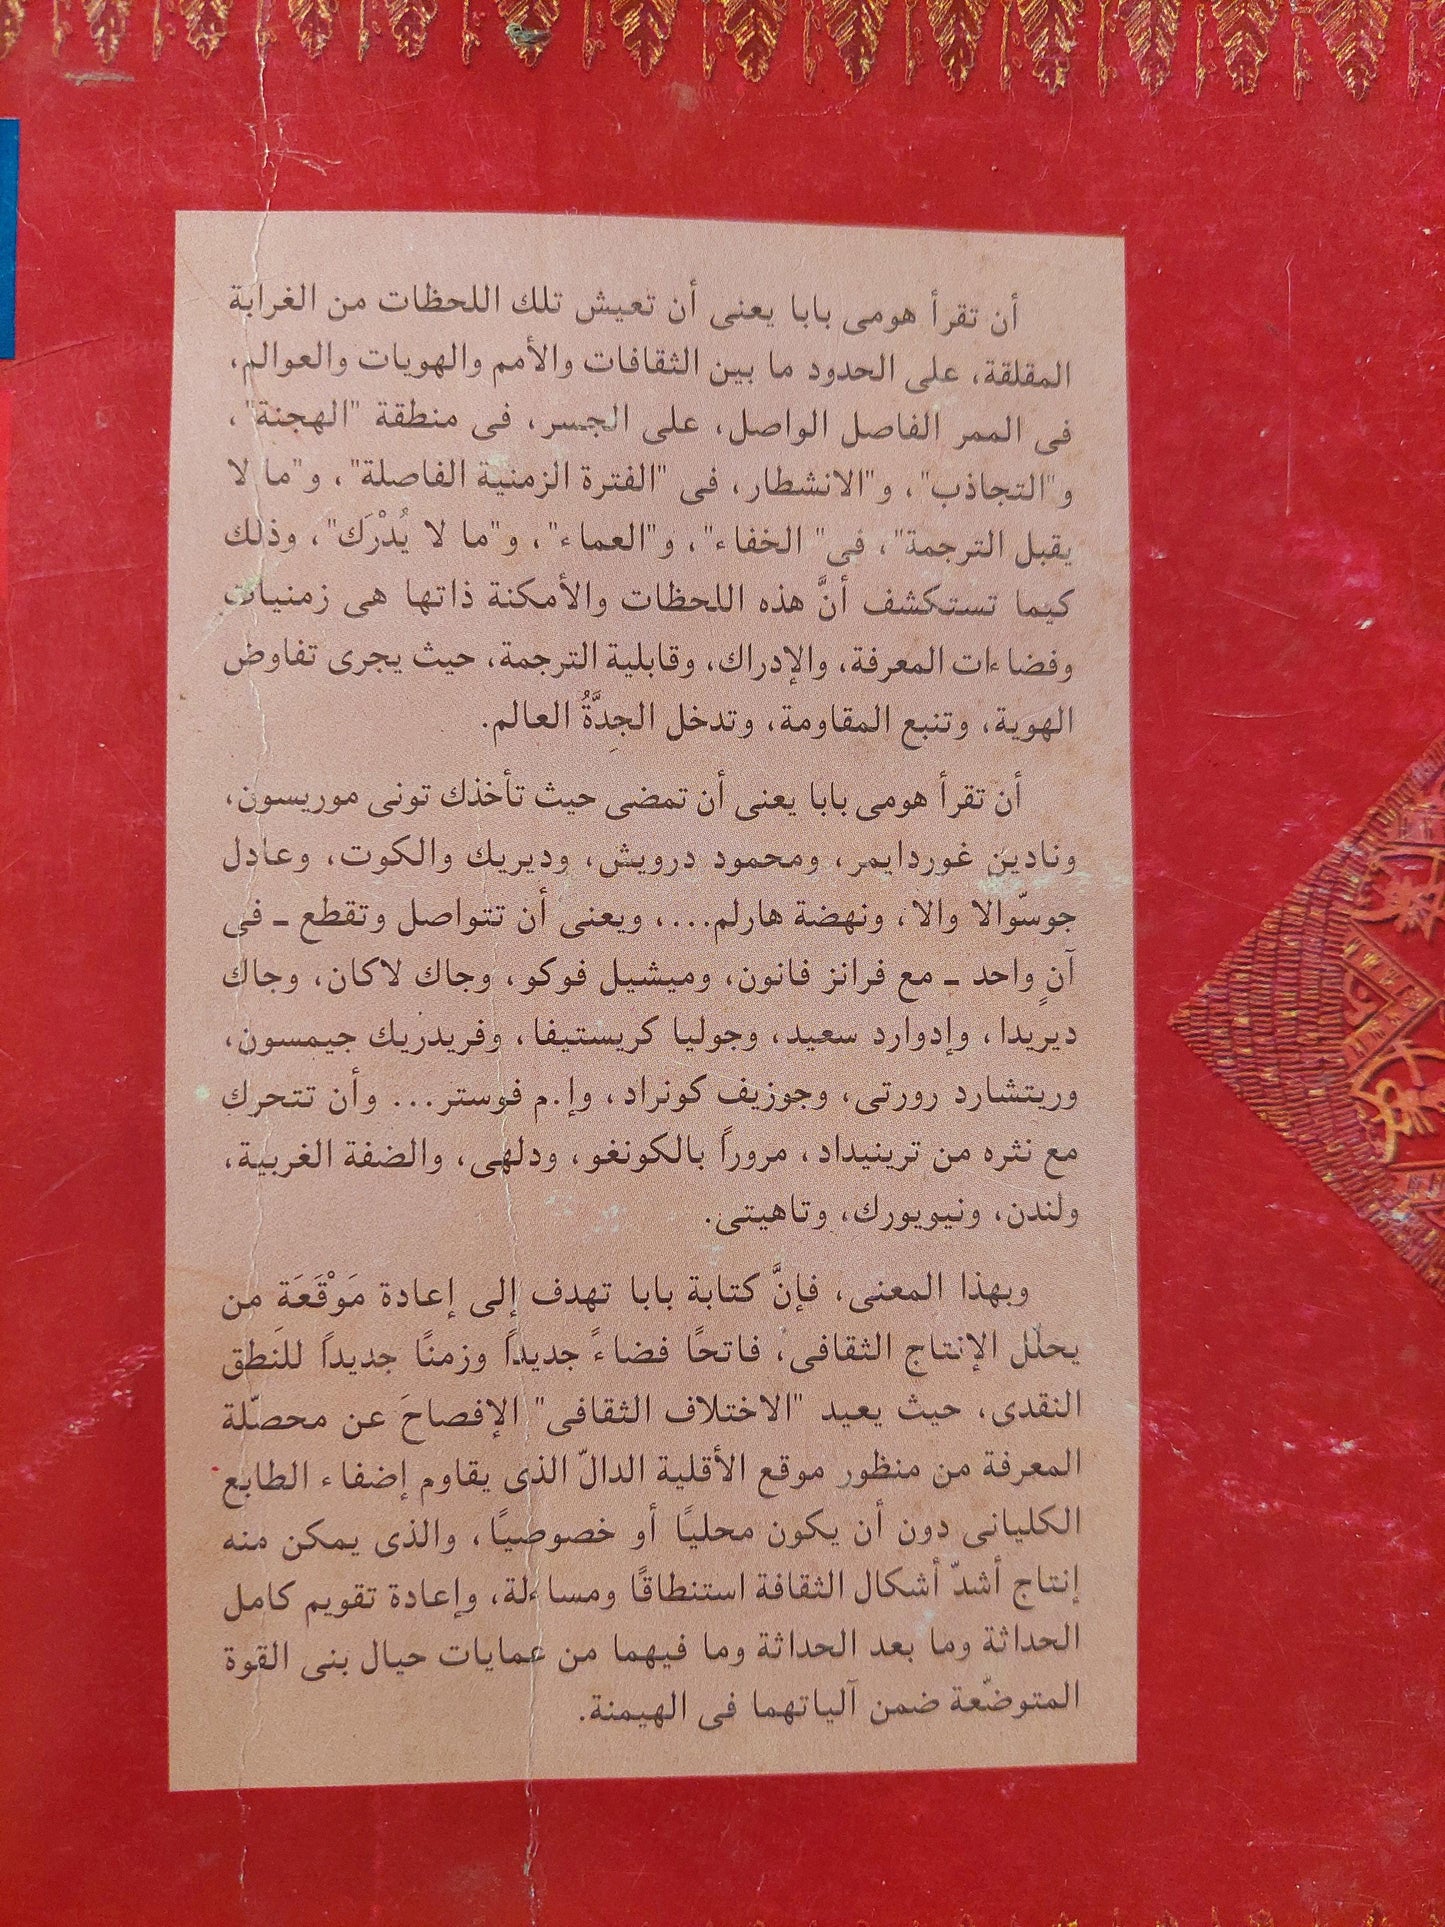 أن تقرأ هومى بابا يعنى أن تعيش تلك اللحظات من الغرابة
المقلقة، على الحدود ما بين الثقافات والأمم والهويات والعوالم،
فى الممر الفاصل الواصل، على الجسر، فى منطقة "الهجنة"،
و"التجاذب"، و"الانشطار، فى "الفترة الزمنية الفاصلة"، و"ما لا
يقبل الترجمة"، فى" الخفاء"، و"العماء"، و"ما لا يُدْرَك"، وذلك
كيما تستكشف أنَّ هذه اللحظات والأمكنة ذاتها هى زمنيات
وفضاءات المعرفة، والإدراك، وقابلية الترجمة، حيث يجرى تفاوض
الهوية، وتنبع المقاومة، وتدخل الجِدَّةُ العالم.
أن تقرأ هومى بابا يعنى أن تمضى حيث تأخذك تونى موريسون،
ونادين غوردايمر، ومحمود درويش، وديريك والكوت، وعادل
جوسّوالا والا، ونهضة هارلم...، ويعنى أن تتواصل وتقطع ـ فى
آنٍ واحد ـ مع فرانز فانون، وميشيل فوكو، وجاك لاكان، وجاك
ديريدا، وإدوارد سعيد، وجوليا كريستيفا، وفريدريك جيمسون،
وريتشارد رورتى، وجوزيف كونراد، وإ.م فوستر... وأن تتحرك
مع نثره من ترينيداد، مروراً بالكونغو، ودلهى، والضفة الغربية،
ولندن، ونيويورك، وتاهيتى.
وبهذا المعنى، فإنَّ كتابة بابا تهدف إلى إعادة مَوْقَعَةِ من
يحلل الإنتاج الثقافى، فاتحًا فضاءً جديداً وزمنًا جديداً للنطق
النقدى، حيث يعيد "الاختلاف الثقافى" الإفصاحَ عن محصّلة
المعرفة من منظور موقع الأقلية الدالّ الذى يقاوم إضفاء الطابع
الكليانى دون أن يكون محليًا أو خصوصيًا، والذى يمكن منه
إنتاج أشدّ أشكال الثقافة استنطاقًا ومساءلة، وإعادة تقويم كامل
الحداثة وما بعد الحداثة وما فيهما من عمايات حيال بنى القوة
المتوضّعة ضمن آلياتهما فى الهيمنة.